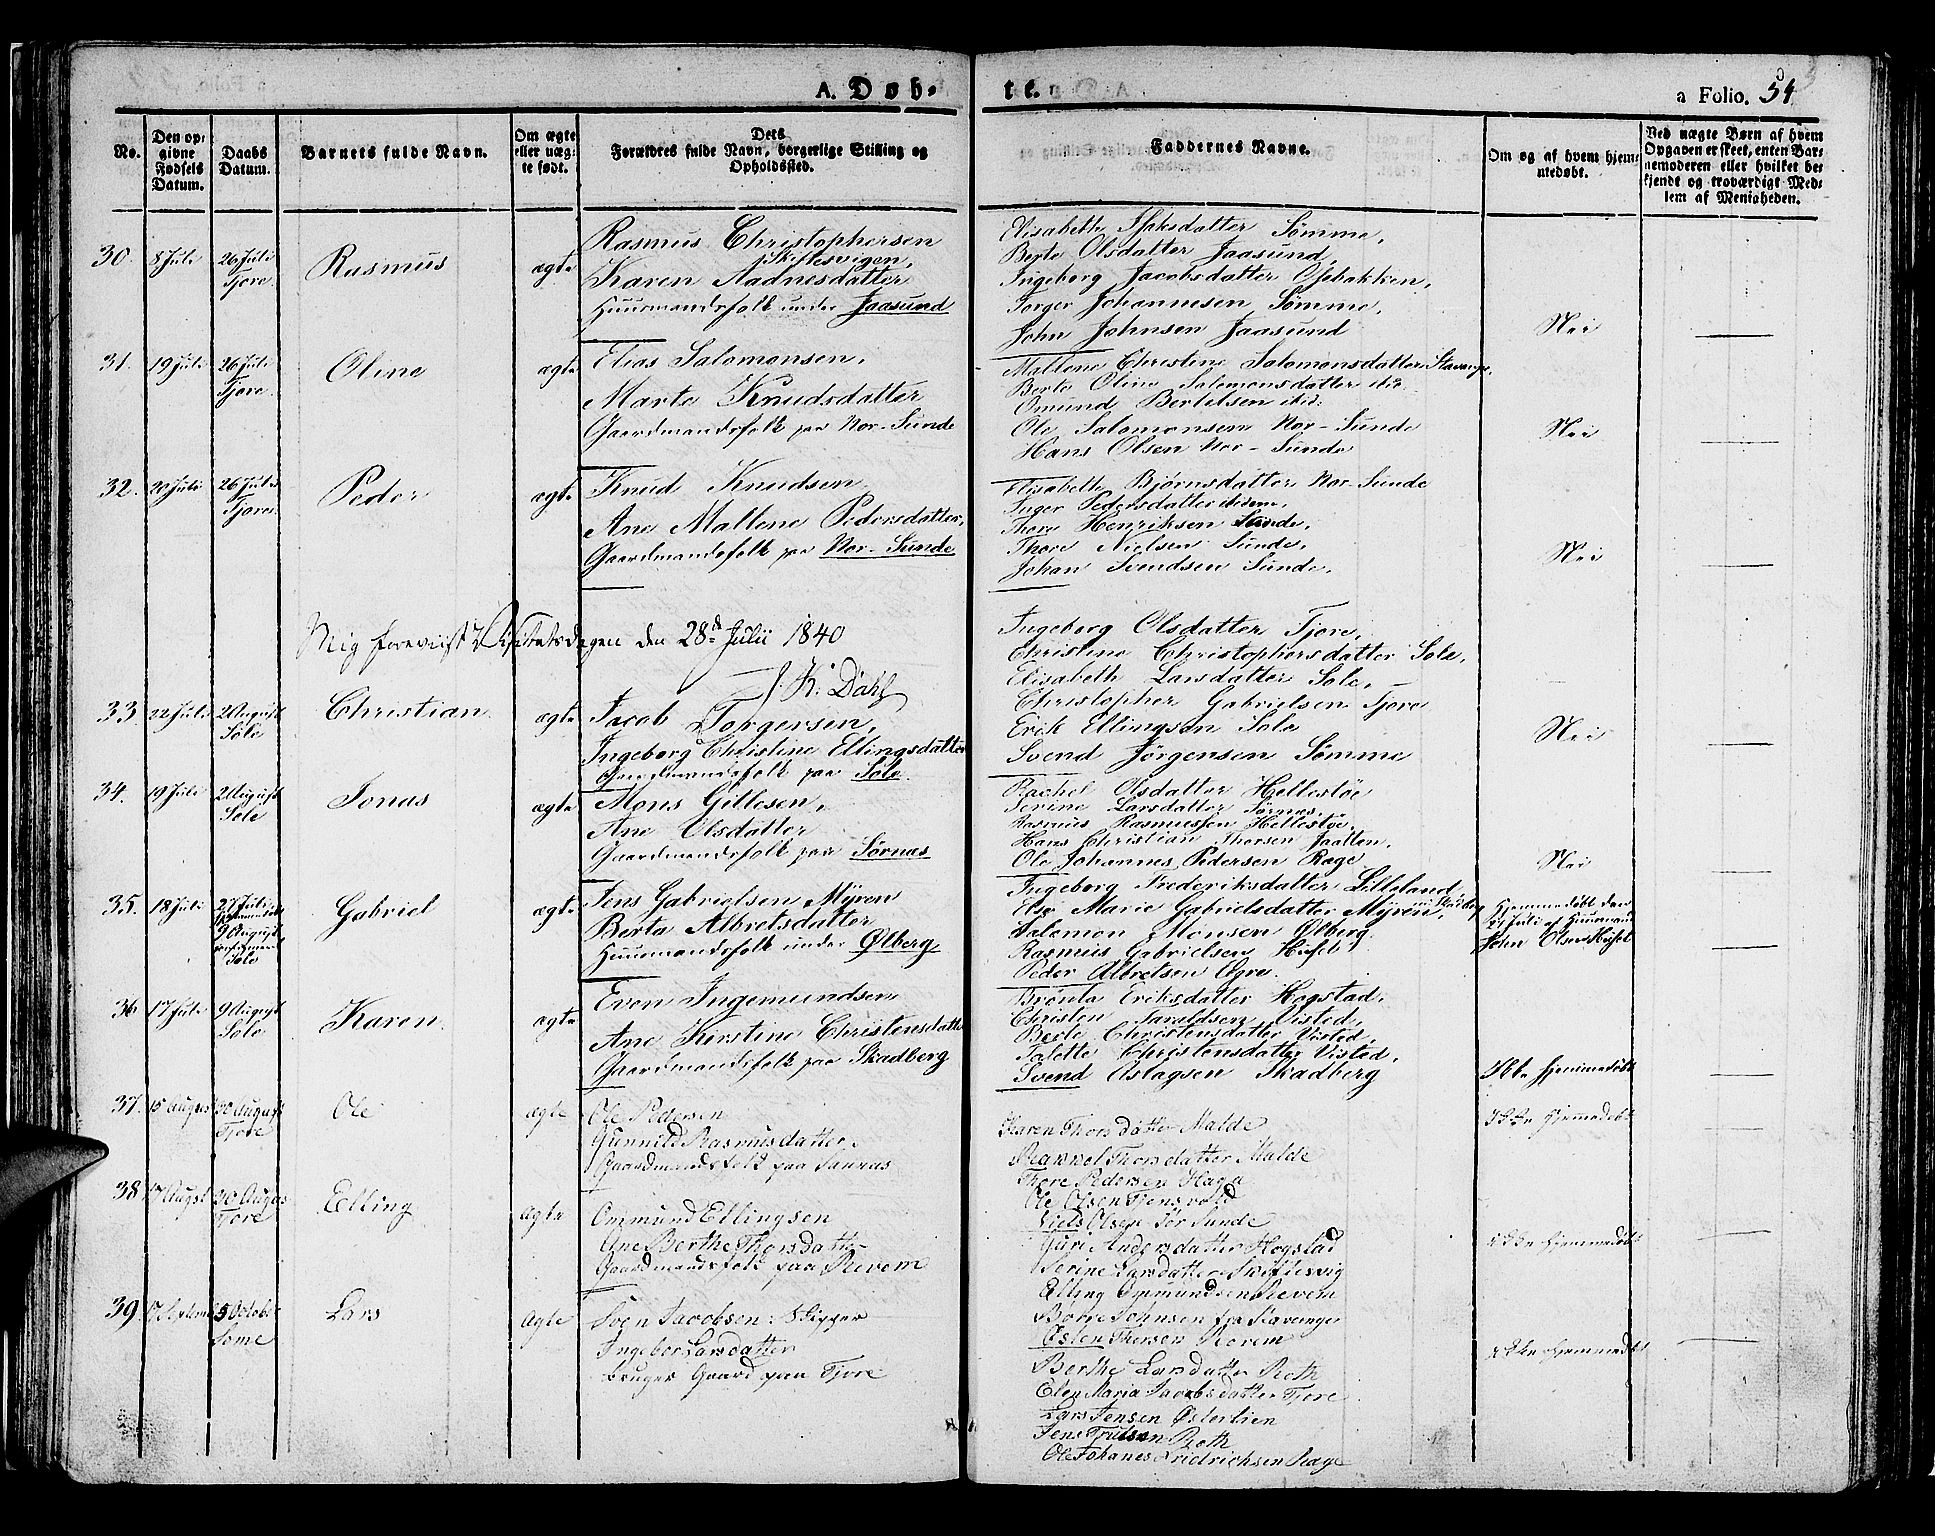 A. Døb-
te.
a Folio. 34
No.
Den op-
givne
Fødsels
Datum.
Daabs
Datum.
Barnets fulde Navn.
Om ægte
eller uæg-
te født.
Dets
Forældres fulde Navn, borgerlige Stilling og
Opholdssted.
Faddernes Navne.
Om og af hvem hjem-
medøbt.
Ved uægte Børn af hvem
Opgaven er skeet, enten Bar-
nemoderen eller hvilket be-
kjendt og troværdigt Med-
lem af Menigheden.
30.
8 Juli
26 Juli
Tjore.
Rasmus
ægte
Rasmus Christophersen
Skiftesvigen,
Karen Aadnesdatter
Huusmandsfolk under Jaasund
Elisabeth Isaksdatter Sømme,
Berte Olsdatter Jaasund,
Ingeborg Jacobsdatter Osebakken,
Torger Johannesen Sømme,
John Johnsen Jaasund
Nei
31.
19 Juli
26 Juli
Tjore.
Oline
ægte
Elias Salomonsen,
Marte Knudsdatter
Gaardmandsfolk paa Nor-Sunde
Mallene Christine Salomonsdatter Stavanger,
Berte Oline Salomonsdatter ibid.
Omund Bertelsen ibid.
Ole Salomonsen Nor-Sunde
Hans Olsen Nor-Sunde
Nei
32.
20 Juli
26 Juli
Tjore.
Peder
ægte
Knud Knudsen
Ane Mallene Pedersdatter,
Gaardmandsfolk paa Nor-Sunde
Elisabeth Bjørnsdatter Nor-Sunde
Inger Pedersdatter ibidem,
Thore Henriksen Sunde,
Thore Nielsen Sunde,
Johan Svendsen Sunde,
Nei
Mig foreviist Visitatsdagen den 28d Julii 1840
J. K. Dahl
33
22 Juli
2 August
Sole
Christian
ægte
Jacob Torgersen,
Ingeborg Christine Ellingsdatter
Gaardmandsfolk paa Sole.
Ingeborg Olsdatter Tjore,
Christine Christophersdatter Sole,
Elisabeth Larsdatter Sole,
Christopher Gabrielsen Tjore
Erik Ellingsen Sole
Svend Jörgensen Sømme
Nei
34.
19 Juli
2 August
Sole
Jonas
ægte
Mons Gillesen,
Ane Olsdatter
Gaardmandsfolk paa Sørnæs
Rachel Olsdatter Hellestøe
Serine Larsdatter Sørnæs,
Rasmus Rasmussen Hellestøe,
Hans Christian Thorsen Jaatten,
Ole Johannes Pedersen Rage
Nei
35.
18 Juli
27 Juli
9 August
Sole
Gabriel
ægte
Jens Gabrielsen Myren
Berta Albretsdatter
Huusmandsfolk under Ølberg
Ingeborg Frederiksdatter Lilleland,
Else Marie Gabrielsdatter Myren,
Salomon Monsen Ølberg
Rasmus Gabrielsen
Peder Albretsen
Hjemmedøbt den
21 Juli af Huusmand
John Olsen
36
17 Juli
9 August
Sole
Karen.
ægte
Even Ingemundsen
Ane Kirstine Christensdatter
Gaardmandsfolk paa Skadberg
Brönla Eriksdatter Hogstad,
Christen Taraldsen Visted,
Berte Christensdatter Visted,
Talette Christensdatter Visted,
Svend Aslagsen Skadberg
Ikke Hjemmedøbt
37.
15 August
30 August
Tjore
Ole
ægte
Ole Pedersen
Gunnild Rasmusdatter
Gaardmandsfolk paa
Karen Thorsdatter Malde
Thorsdatter Malde
Thore Pedersen Haga
Ole Olsen Tjensvold
Niels Olsen Sør Sunde
Ikke Hjemmedøbt
38
17 August
30 August
Tjore
Elling
ægte
Ommund Ellingsen
Ane Berthe Thorsdatter
Gaardmandsfolk paa Revem
Guri Andersdatter Hogstad
Serine Larsdatter Skiftesvig
Elling Ommundsen Revem
Børre Johnsen fra Stavanger
Østen Thorsen Rorem
Ikke Hjemmedøbt
39
17 Septemb
5 October
Some
Lars
ægte
Sven Jacobsen Skipper
Ingebor Larsdatter
bruger Gaard paa Tjore
Berthe Larsdatter Roth
Elen Maria Jacobsdatter Tjore
Lars Jensen
Jens Roth
Ole Johanes Fridrichsen Ræge
Ikke Hjemmedøbt